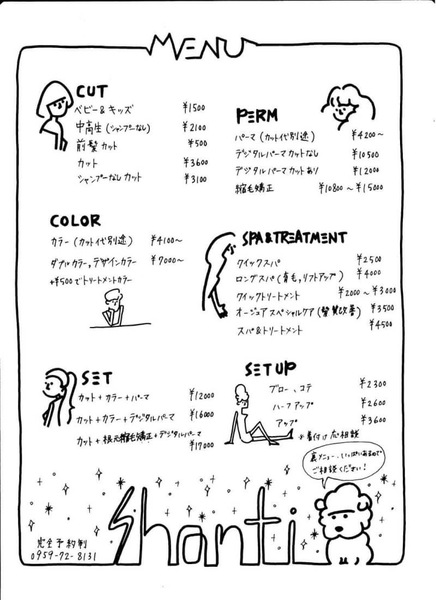 MENU
CUT
ベビー&キッズ ¥1500
中高生(シャンプーなし) ¥2100
前髪カット ¥500
カット ¥3600
シャンプーなしカット ¥3100
PERM
パーマ(カット代別途) ¥4200～
デジタルパーマカットなし ¥10500
デジタルパーマカットあり ¥12000
縮毛矯正 ¥10800～¥15000
COLOR
カラー(カット代別途) ¥4100～
ダブルカラー,デザインカラー ¥7000～
+¥500でトリートメントカラー
SPA&TREATMENT
クイックスパ ¥2500
ロングスパ(育毛,リフトアップ) ¥4000
クイックトリートメント ¥2000～¥3000
オージュアスペシャルケア(髪質改善) ¥3500
スパ&トリートメント ¥4500
SET
カット+カラー+パーマ ¥12000
カット+カラー+デジタルパーマ ¥16000
カット+根元縮毛矯正+デジタルパーマ ¥17000
SET UP
ブロー、コテ ¥2300
ハーフアップ ¥2600
アップ ¥3600
※着付け応相談
裏メニュー、いっぱいあるので
ご相談ください!
Shanti
完全予約制
0959-72-8131